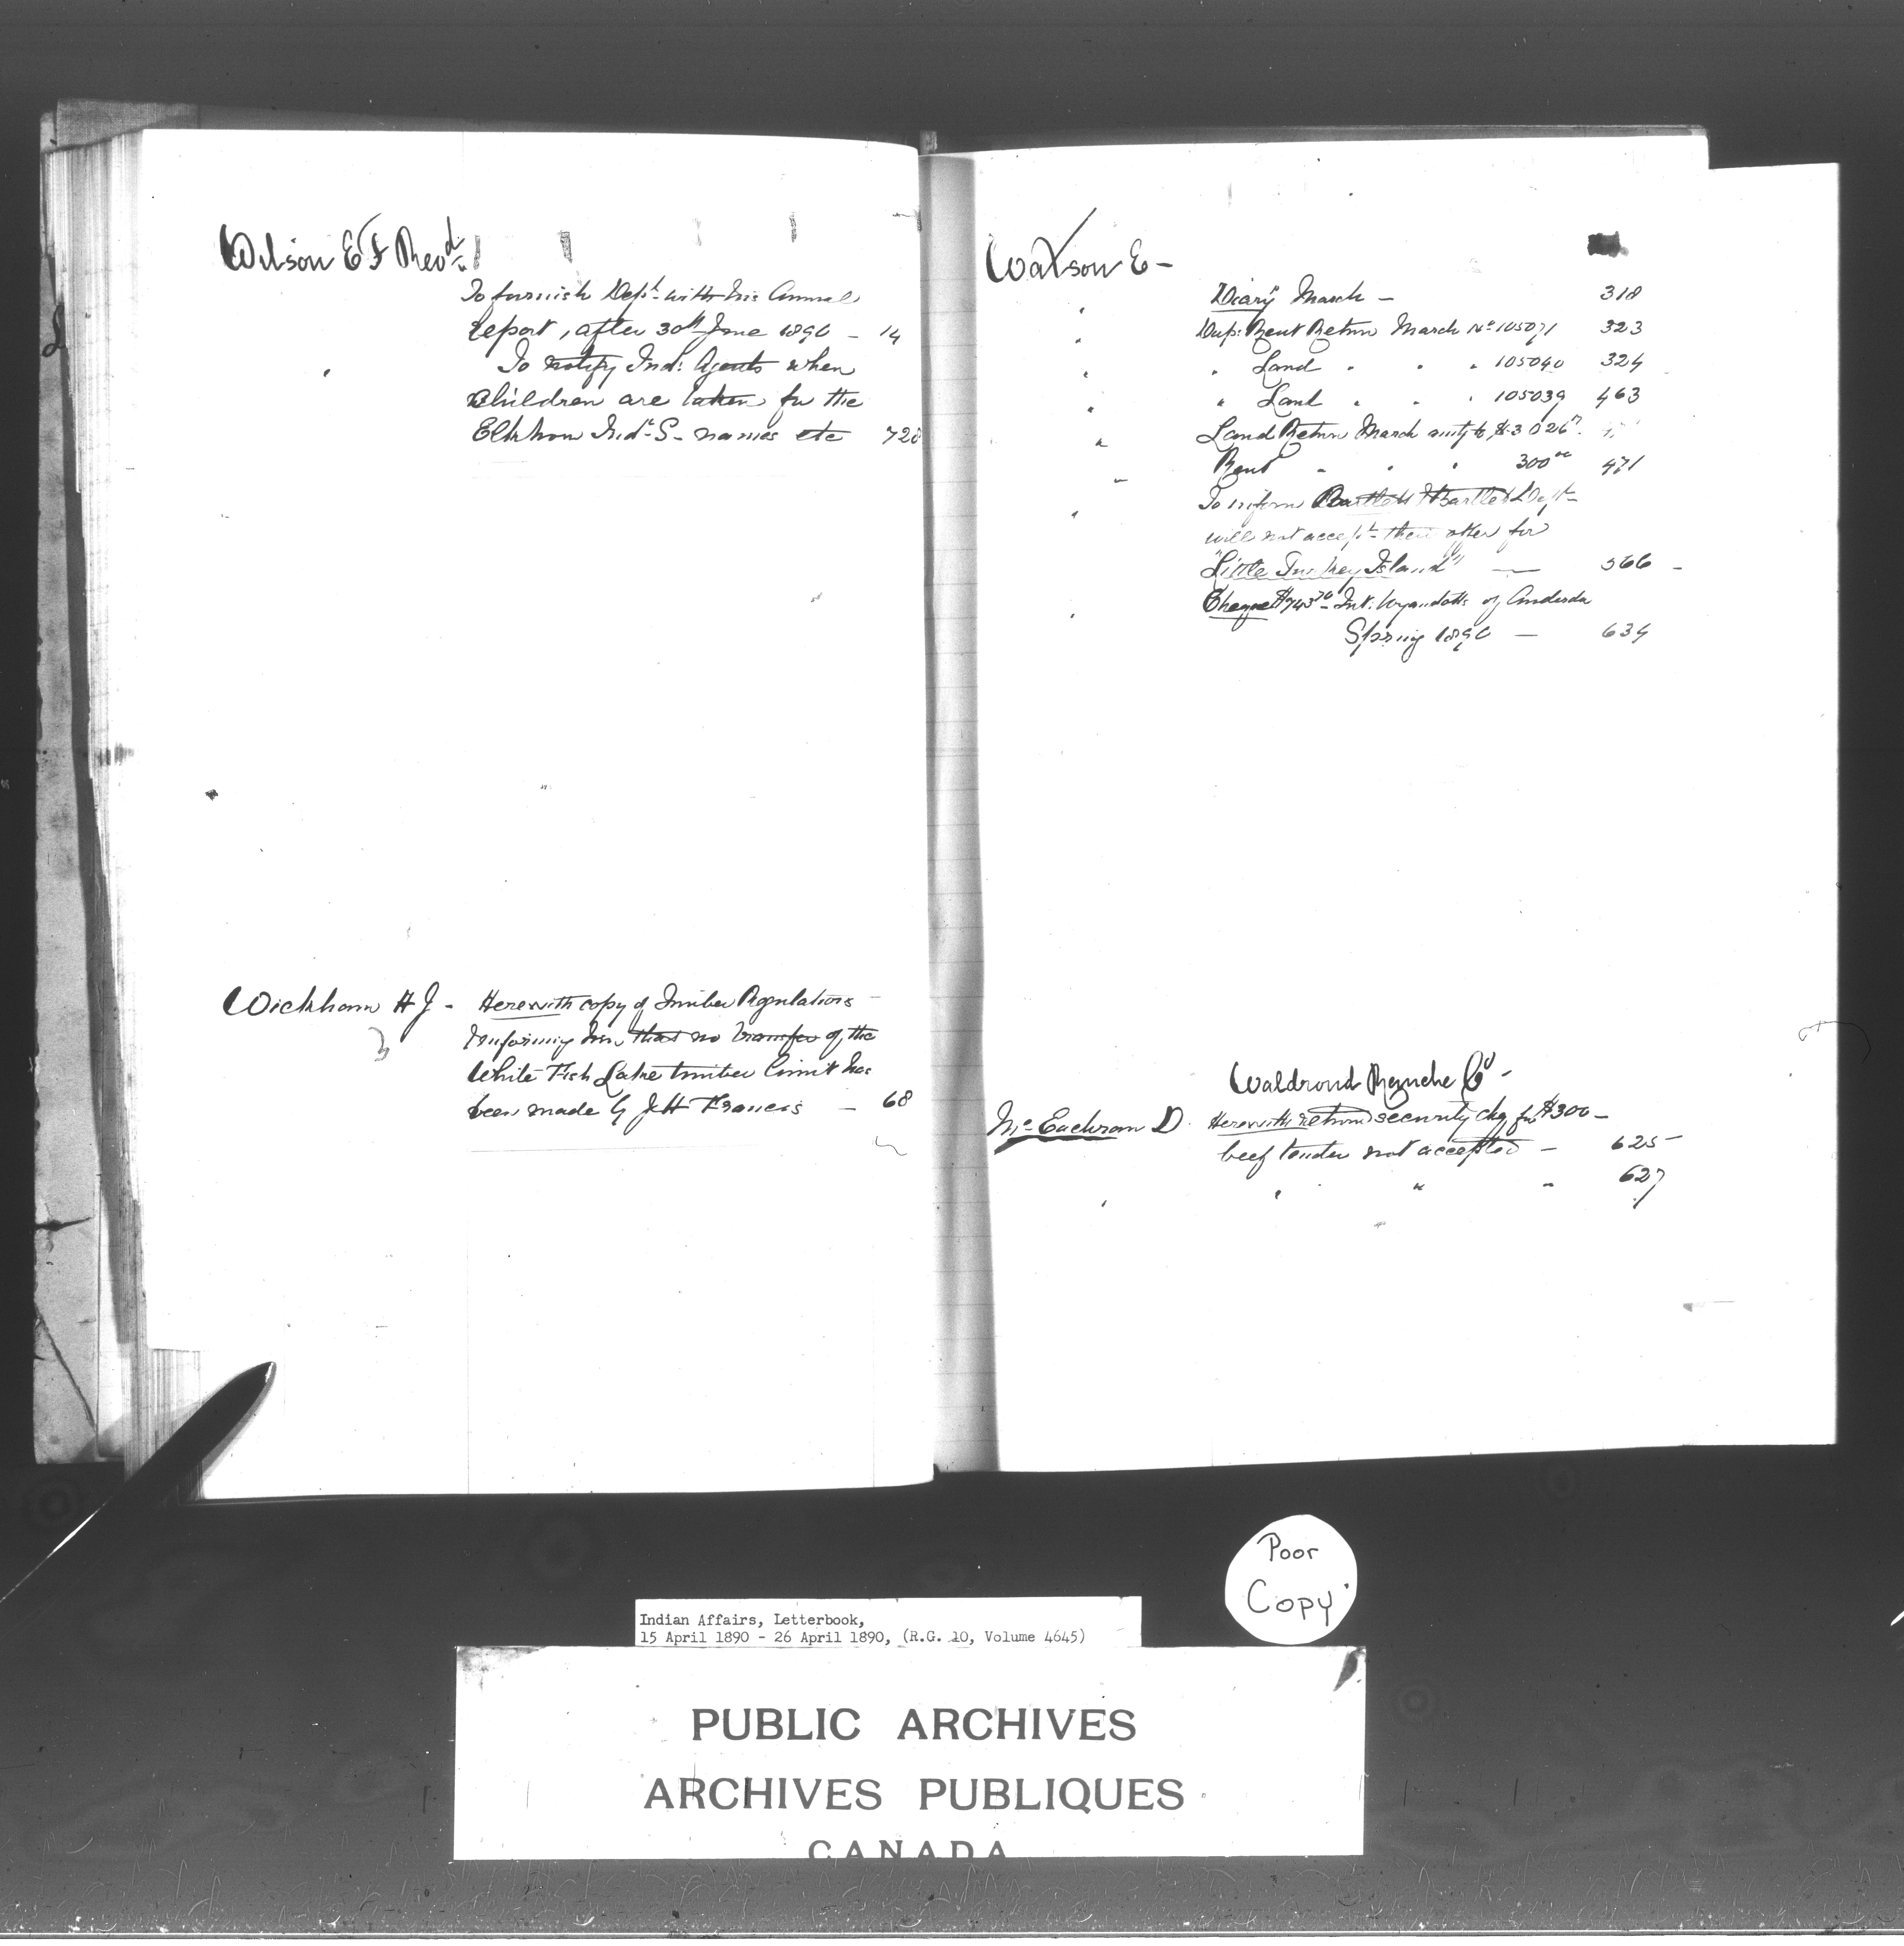 Wilson E F Revd.
To furnish Dept. with his Annual
report, after 30th June 1890 – 14
" To notify Ind: Agents when
Children are taken for the
Elkhorn Ind. S. names etc 728
Wickham H J - Herewith copy of Timber Regulations –
Informing him that no transfer of the
White Fish Lake timber limit has
been made by J H Francis – 68
Watson E –
" Diary March – 318
" Dup: Rent Return March No 105071 323
" " Land " " " 105040 324
" " Land " " " 105039 463
" Land Return March amtg to $3026
" Rent " " " 300 00 471
" To inform Bartlet & Bartlet Dept.
will not accept their offer for
"Little Turkey Island" — 566 –
" Cheque $743 70 – Int: Wyandotts of Anderdon
Spring 1890 – 634
Waldrond Ranche Co –
McEachran D. Herewith return security chq for $300 –
beef tender not accepted – 625 –
" " " " 627
Poor
Copy
Indian Affairs, Letterbook,
15 April 1890 - 26 April 1890, (R.G. 10, Volume 4645)
PUBLIC ARCHIVES
ARCHIVES PUBLIQUES
CANADA